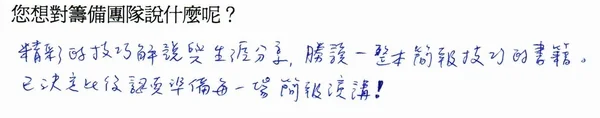 您想對籌備團隊說什麼呢？
精彩的技巧解說與生涯分享，勝讀一整本簡報技巧的書籍。
已決定此後認真準備每一場簡報演講！